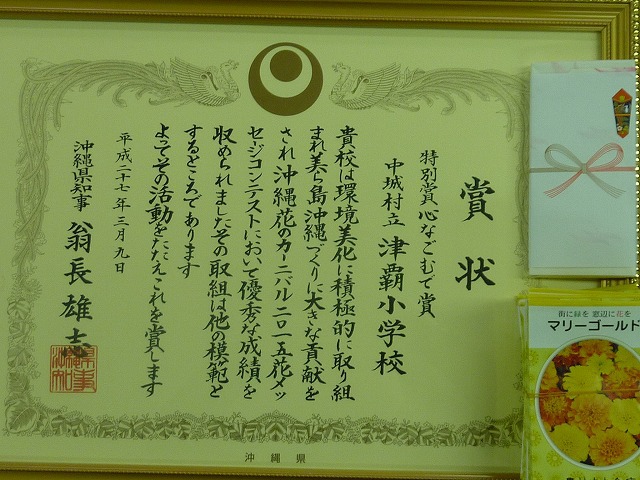 賞状
特別賞 心なごむで賞
中城村立 津覇小学校
貴校は環境美化に積極的に取り組
まれ美ら島沖縄づくりに大きな貢献を
され沖縄花のカーニバル二〇一五花メッ
セジコンテストにおいて優秀な成績を
収められましたその取組は他の模範と
するところであります
よってその活動をたたえこれを賞します
平成二十七年三月九日
沖縄県知事 翁長雄志
沖縄県
街に緑を 窓辺に花を
マリーゴールド